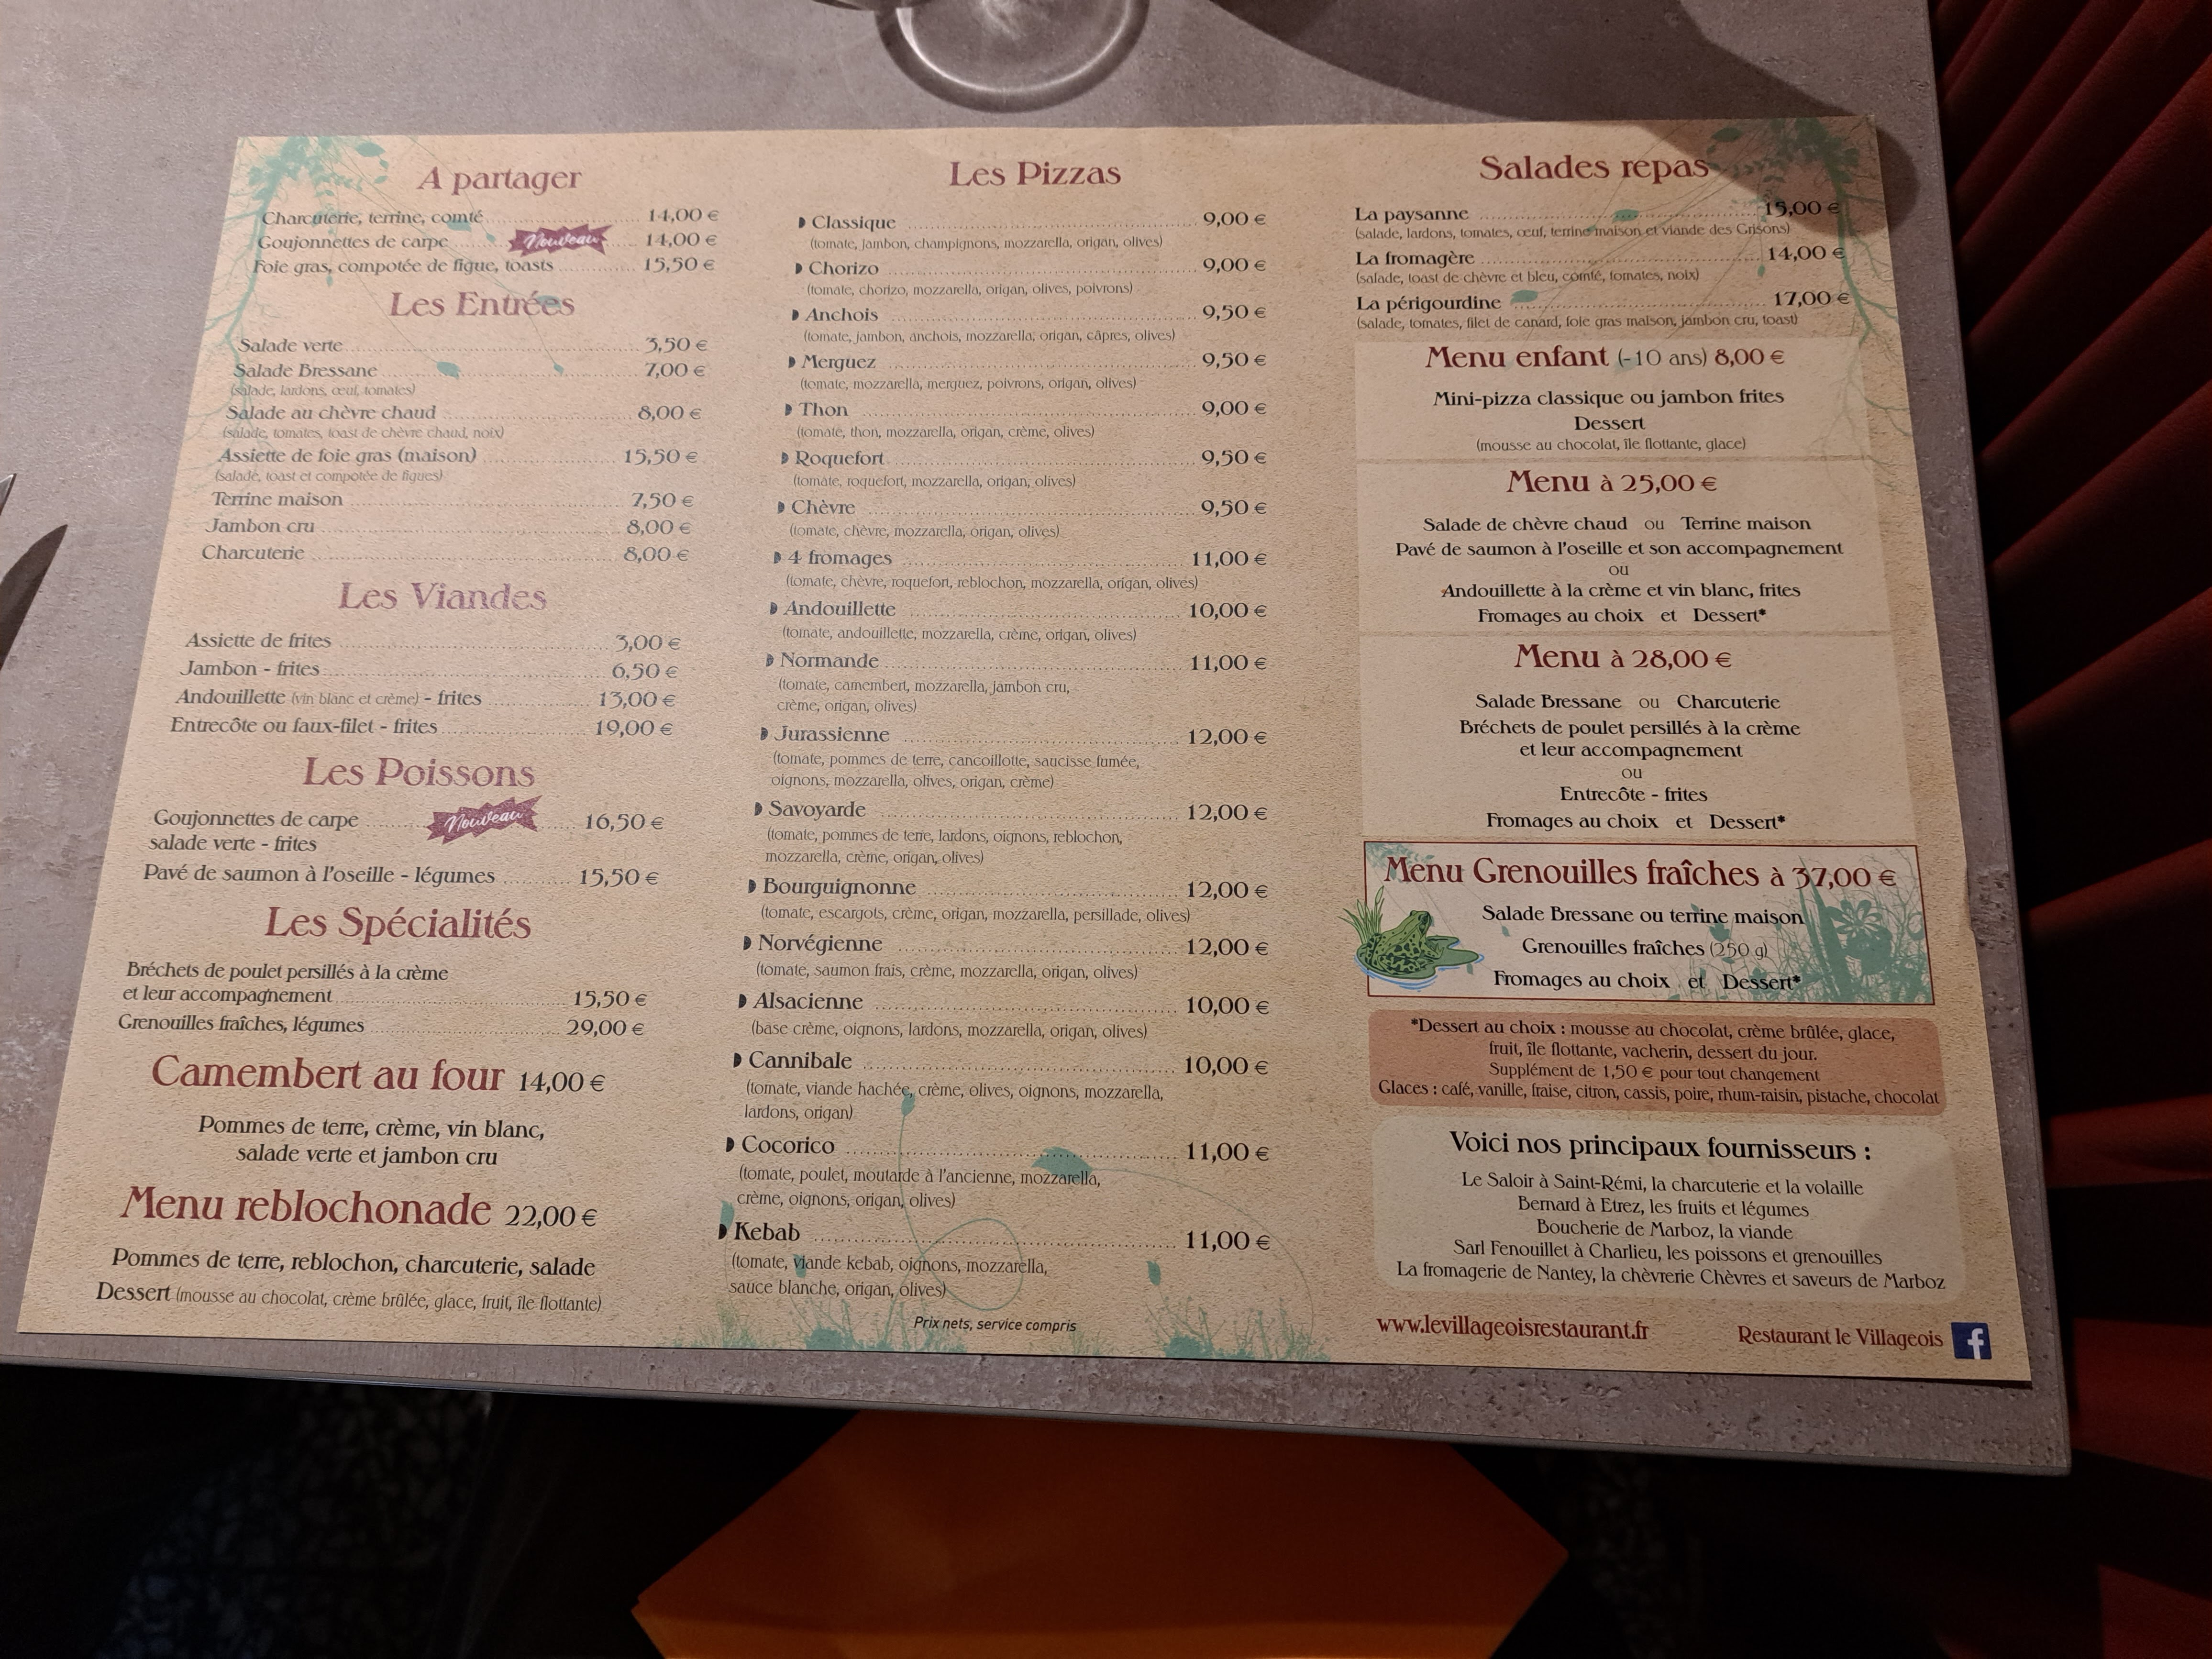 A partager
Charcuterie, terrine, comté 14,00 €
Goujonnettes de carpe Nouveau 14,00 €
Foie gras, compotée de figue, toasts 15,50 €
Les Entrées
Salade verte 3,50 €
Salade Bressane 7,00 €
(salade, lardons, œuf, tomates)
Salade au chèvre chaud 8,00 €
(salade, tomates, toast de chèvre chaud, noix)
Assiette de foie gras (maison) 15,50 €
(salade, toast et compotée de figues)
Terrine maison 7,50 €
Jambon cru 8,00 €
Charcuterie 8,00 €
Les Viandes
Assiette de frites 3,00 €
Jambon - frites 6,50 €
Andouillette (vin blanc et crème) - frites 13,00 €
Entrecôte ou faux-filet - frites 19,00 €
Les Poissons
Goujonnettes de carpe Nouveau 16,50 €
salade verte - frites
Pavé de saumon à l'oseille - légumes 15,50 €
Les Spécialités
Bréchets de poulet persillés à la crème
et leur accompagnement 15,50 €
Grenouilles fraîches, légumes 29,00 €
Camembert au four 14,00 €
Pommes de terre, crème, vin blanc,
salade verte et jambon cru
Menu reblochonade 22,00 €
Pommes de terre, reblochon, charcuterie, salade
Dessert (mousse au chocolat, crème brûlée, glace, fruit, île flottante)
Les Pizzas
Classique 9,00 €
(tomate, jambon, champignons, mozzarella, origan, olives)
Chorizo 9,00 €
(tomate, chorizo, mozzarella, origan, olives, poivrons)
Anchois 9,50 €
(tomate, jambon, anchois, mozzarella, origan, câpres, olives)
Merguez 9,50 €
(tomate, mozzarella, merguez, poivrons, origan, olives)
Thon 9,00 €
(tomate, thon, mozzarella, origan, crème, olives)
Roquefort 9,50 €
(tomate, roquefort, mozzarella, origan, olives)
Chèvre 9,50 €
(tomate, chèvre, mozzarella, origan, olives)
4 fromages 11,00 €
(tomate, chèvre, roquefort, reblochon, mozzarella, origan, olives)
Andouillette 10,00 €
(tomate, andouillette, mozzarella, crème, origan, olives)
Normande 11,00 €
(tomate, camembert, mozzarella, jambon cru,
crème, origan, olives)
Jurassienne 12,00 €
(tomate, pommes de terre, cancoillotte, saucisse fumée,
oignons, mozzarella, olives, origan, crème)
Savoyarde 12,00 €
(tomate, pommes de terre, lardons, oignons, reblochon,
mozzarella, crème, origan, olives)
Bourguignonne 12,00 €
(tomate, escargots, crème, origan, mozzarella, persillade, olives)
Norvégienne 12,00 €
(tomate, saumon frais, crème, mozzarella, origan, olives)
Alsacienne 10,00 €
(base crème, oignons, lardons, mozzarella, origan, olives)
Cannibale 10,00 €
(tomate, viande hachée, crème, olives, oignons, mozzarella,
lardons, origan)
Cocorico 11,00 €
(tomate, poulet, moutarde à l'ancienne, mozzarella,
crème, oignons, origan, olives)
Kebab 11,00 €
(tomate, viande kebab, oignons, mozzarella,
sauce blanche, origan, olives)
Prix nets, service compris
Salades repas
La paysanne 15,00 €
(salade, lardons, tomates, œuf, terrine maison et viande des Grisons)
La fromagère 14,00 €
(salade, toast de chèvre et bleu, comté, tomates, noix)
La périgourdine 17,00 €
(salade, tomates, filet de canard, foie gras maison, jambon cru, toast)
Menu enfant (-10 ans) 8,00 €
Mini-pizza classique ou jambon frites
Dessert
(mousse au chocolat, île flottante, glace)
Menu à 25,00 €
Salade de chèvre chaud ou Terrine maison
Pavé de saumon à l'oseille et son accompagnement
ou
Andouillette à la crème et vin blanc, frites
Fromages au choix et Dessert*
Menu à 28,00 €
Salade Bressane ou Charcuterie
Bréchets de poulet persillés à la crème
et leur accompagnement
ou
Entrecôte - frites
Fromages au choix et Dessert*
Menu Grenouilles fraîches à 37,00 €
Salade Bressane ou terrine maison
Grenouilles fraîches (250 g)
Fromages au choix et Dessert*
*Dessert au choix : mousse au chocolat, crème brûlée, glace,
fruit, île flottante, vacherin, dessert du jour.
Supplément de 1,50 € pour tout changement
Glaces : café, vanille, fraise, citron, cassis, poire, rhum-raisin, pistache, chocolat
Voici nos principaux fournisseurs :
Le Saloir à Saint-Rémi, la charcuterie et la volaille
Bernard à Etrez, les fruits et légumes
Boucherie de Marboz, la viande
Sarl Fenouillet à Charlieu, les poissons et grenouilles
La fromagerie de Nantey, la chèvrerie Chèvres et saveurs de Marboz
www.levillageoisrestaurant.fr Restaurant le Villageois f